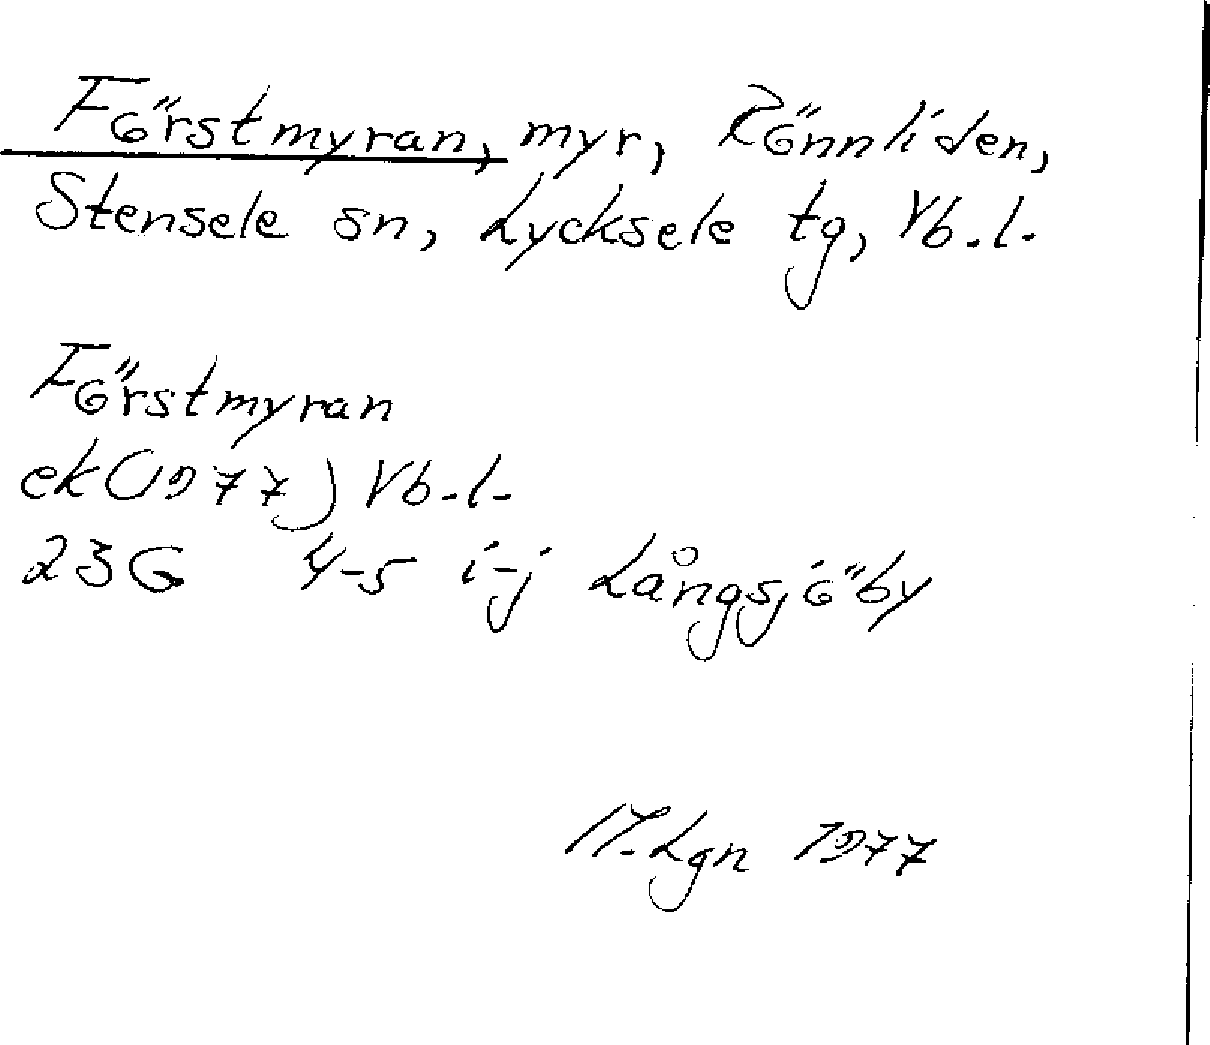 Förstmyran, myr, Rönnliden,
Stensele sn, Lycksele tg, Vb.l.
Förstmyran
ek (1977) Vb.l.
23G 4-5 i-j Långsjöby
1977